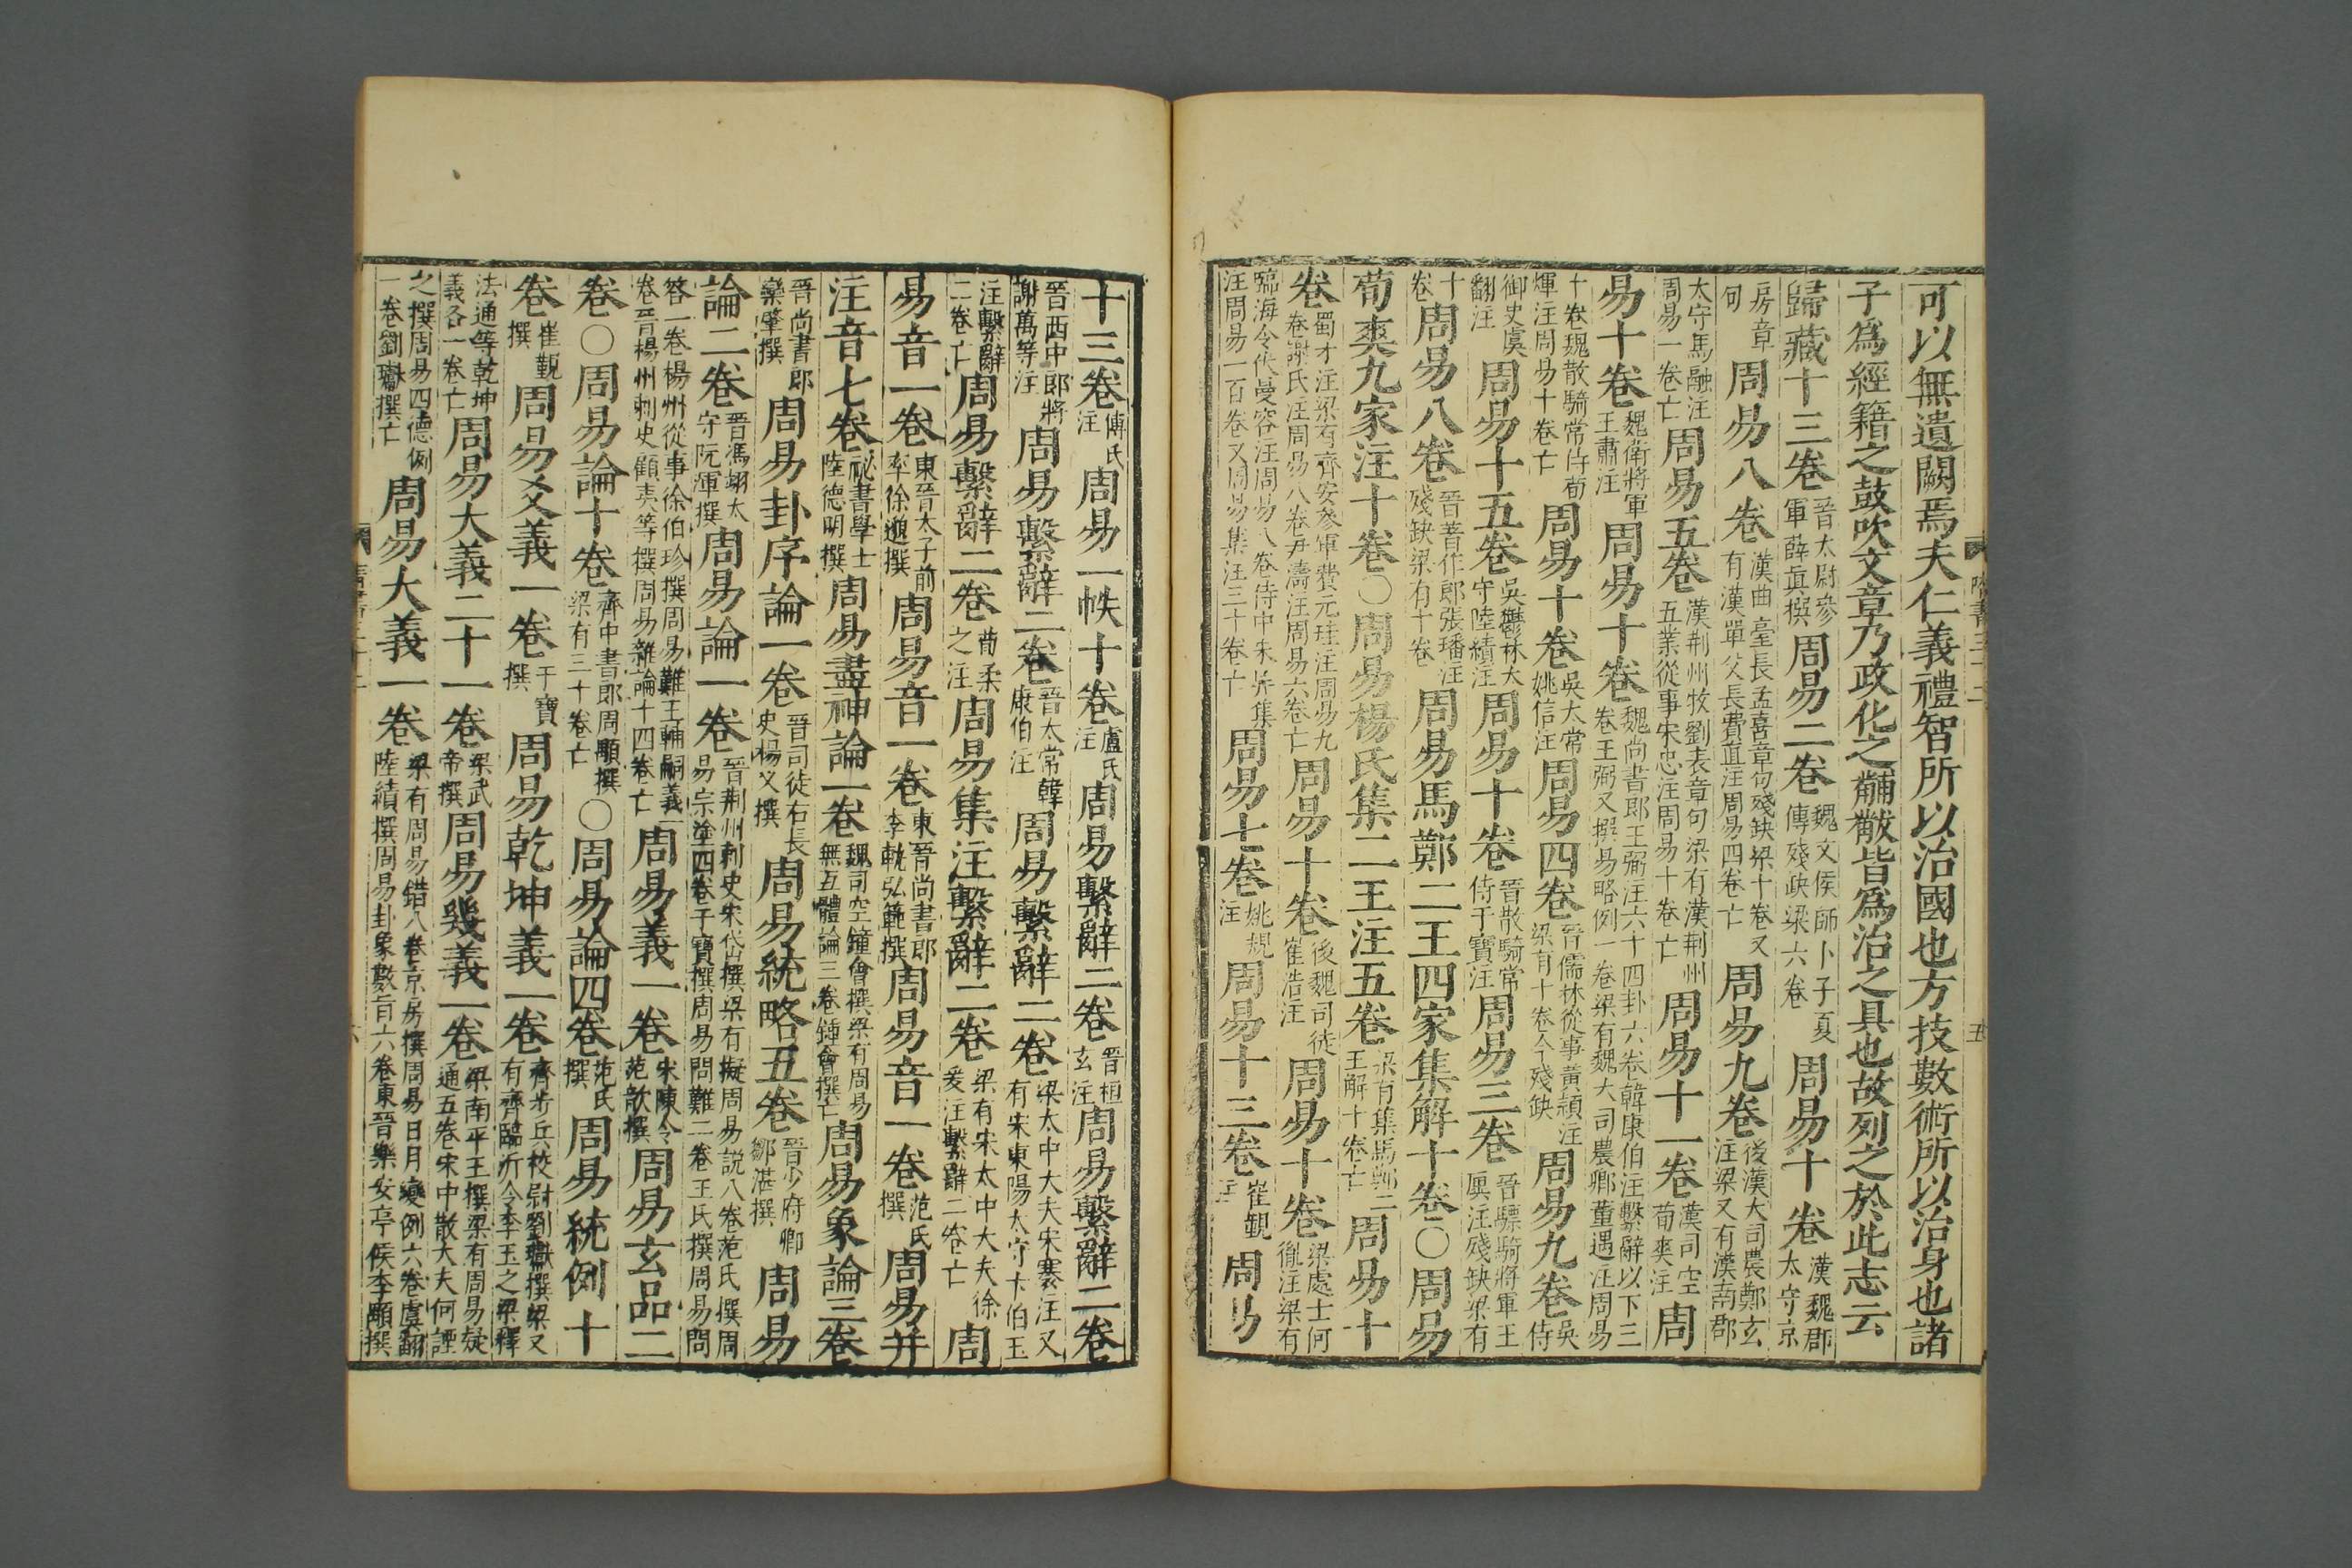 可以無遺闕焉夫仁義禮智所以治國也方技數術所以治身也諸
子爲經籍之鼓吹文章乃政化之黼黻皆爲治之具也故列之於此志云
歸藏十三卷晉太尉參軍薛貞撰周易二卷魏文侯師卜子夏傳殘缺梁六卷周易十卷漢魏郡太守京
房章句周易八卷漢曲臺長孟喜章句殘缺梁十卷又有漢單父長費直注周易四卷亡周易九卷後漢大司農鄭玄注梁又有漢南郡
太守馬融注周易一卷亡周易五卷漢荆州牧劉表章句梁有漢荆州五業從事宋忠注周易十卷亡周易十一卷漢司空荀爽注周
易十卷魏衛將軍王肅注周易十卷魏尚書郎王弼注六十四卦六卷韓康伯注繫辭以下三卷王弼又撰易略例一卷梁有魏大司農卿董遇注周易
十卷魏散騎常侍荀煇注周易十卷亡周易十卷吳太常姚信注周易四卷晉儒林從事黃頴注梁有十卷今殘缺周易九卷吳侍
御史虞翻注周易十五卷吳鬱林太守陸績注周易十卷晉散騎常侍干寶注周易三卷晉驃騎將軍王廙注殘缺梁有
十卷周易八卷晉著作郎張璠注殘缺梁有十卷周易馬鄭二王四家集解十卷〇周易
荀爽九家注十卷〇周易楊氏集二王注五卷梁有集馬鄭二王解十卷亡周易十
卷蜀才注梁有齊安參軍費元珪注周易九卷謝氏注周易八卷尹濤注周易六卷亡周易十卷後魏司徒崔浩注周易十卷梁處士何胤注梁有
臨海令伏曼容注周易八卷侍中朱异集注周易一百卷又周易集注三十卷亡周易七卷姚規注周易十三卷崔覲注周易
十三卷傅氏注周易一帙十卷盧氏注周易繫辭二卷晉桓玄注周易繫辭二卷
晉西中郎將謝萬等注周易繫辭二卷晉太常韓康伯注周易繫辭二卷梁太中大夫宋褰注又有宋東陽太守卞伯玉
注繫辭二卷亡周易繫辭二卷荀柔之注周易集注繫辭二卷梁有宋太中大夫徐爰注繫辭二卷亡周
易音一卷東晉太子前率徐邈撰周易音一卷東晉尚書郎李軌弘範撰周易音一卷范氏撰周易并
注音七卷祕書學士陸德明撰周易盡神論一卷魏司空鐘會撰梁有周易無互體論三卷鍾會撰亡周易象論三卷
晉尚書郎欒肇撰周易卦序論一卷晉司徒右長史楊乂撰周易統略五卷晉少府卿鄒湛撰周易
論二卷晉馮翊太守阮渾撰周易論一卷晉荆州刺史宋岱撰梁有擬周易說八卷范氏撰周易宗塗四卷干寶撰周易問難二卷王氏撰周易問
答一卷楊州從事徐伯珍撰周易難王輔嗣義一卷晉楊州刺史顧夷等撰周易雜論十四卷亡周易義一卷宋陳令范歆撰周易玄品二
卷〇周易論十卷齊中書郎周顒撰梁有三十卷亡〇周易論四卷范氏撰周易統例十
卷崔覲撰周易爻義一卷干寶撰周易乾坤義一卷齊步兵校尉劉瓛撰梁又有齊臨沂令李玉之梁釋
法通等乾坤義各一卷亡周易大義二十一卷梁武帝撰周易幾義一卷梁南平王撰梁有周易疑通五卷宋中散大夫何諲
之撰周易四德例一卷劉瓛撰亡周易大義一卷梁有周易錯八卷京房撰周易日月變例六卷虞翻陸績撰周易卦象數旨六卷東晉樂安亭侯李顒撰